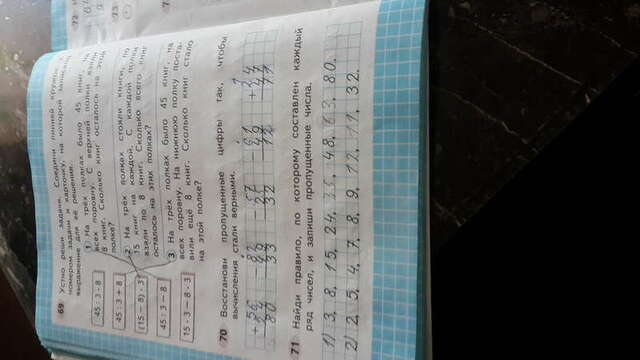 69 Устно реши задачи. Соедини линией кружок с
номером задачи и карточку, на которой записано
выражение для её решения.
1 На трёх полках было 45 книг, на
45 : 3 - 8
всех поровну. С верхней полки взяли
8 книг. Сколько книг осталось на этой
45 : 3 + 8
полке?
2 На трёх полках стояли книги, по
(15 - 8) · 3
15 книг на каждой. С каждой полки
взяли по 8 книг. Сколько всего книг
45 : 3 - 8
осталось на этих полках?
3 На трёх полках было 45 книг, на
15 · 3 - 8 · 3
всех поровну. На нижнюю полку поста-
вили ещё 8 книг. Сколько книг стало
на этой полке?
70 Восстанови пропущенные цифры так, чтобы
вычисления стали верными.
+ 56 - 82 - 57 - 61 + 24
24 49 25 49 47
80 33 32 12 71
71 Найди правило, по которому составлен каждый
ряд чисел, и запиши пропущенные числа.
1) 3, 8, 15, 24, 35, 48, 63, 80.
2) 2, 5, 4, 7, 8, 9, 12, 11, 32.
72
73